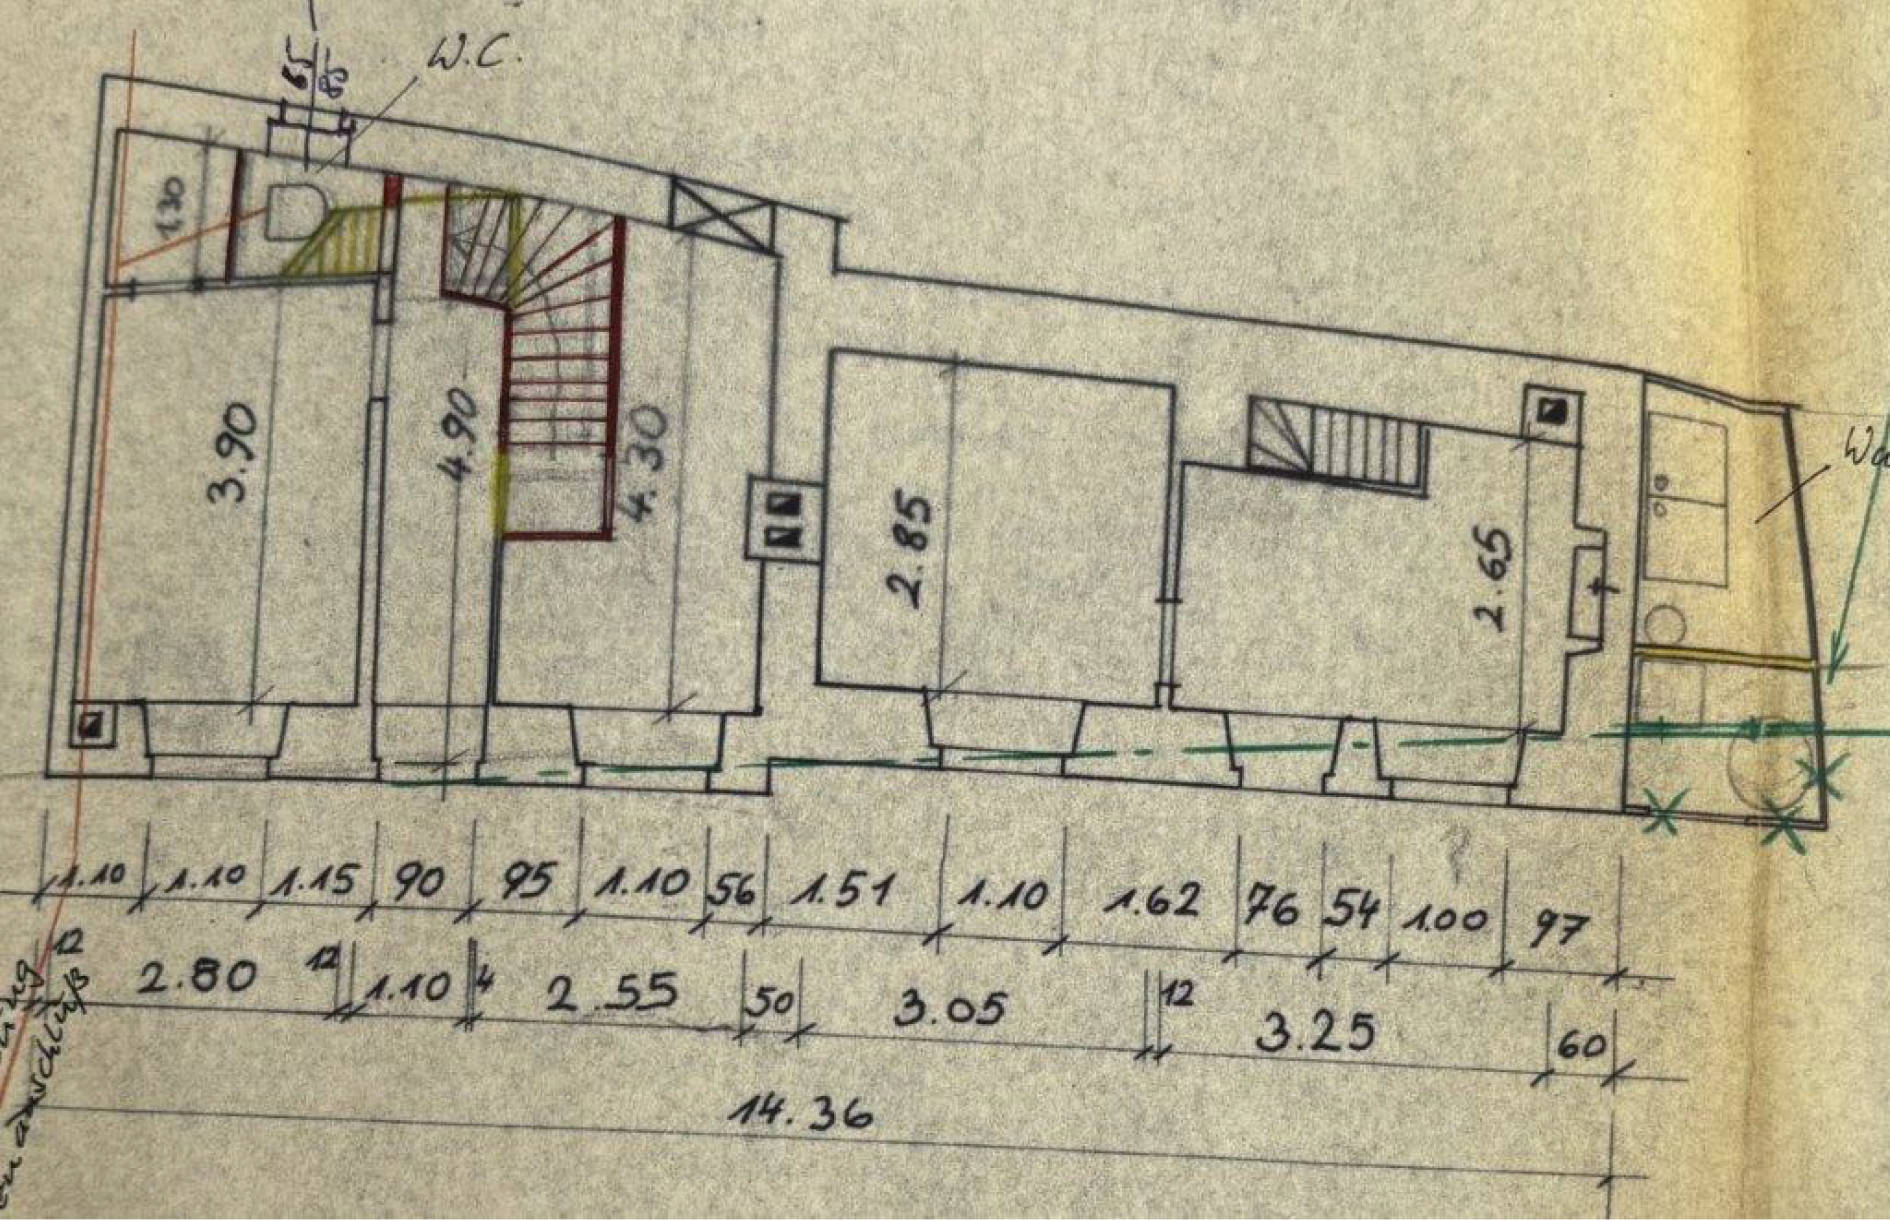 65
85
W.C.
1,30
3.90
4.90
4.30
2.85
2.65
1.10 1.10 1.15 90 95 1.10 56 1.51 1.10 1.62 76 54 1.00 97
12 2.80 12 1.10 4 2.55 50 3.05 12 3.25 60
14.36